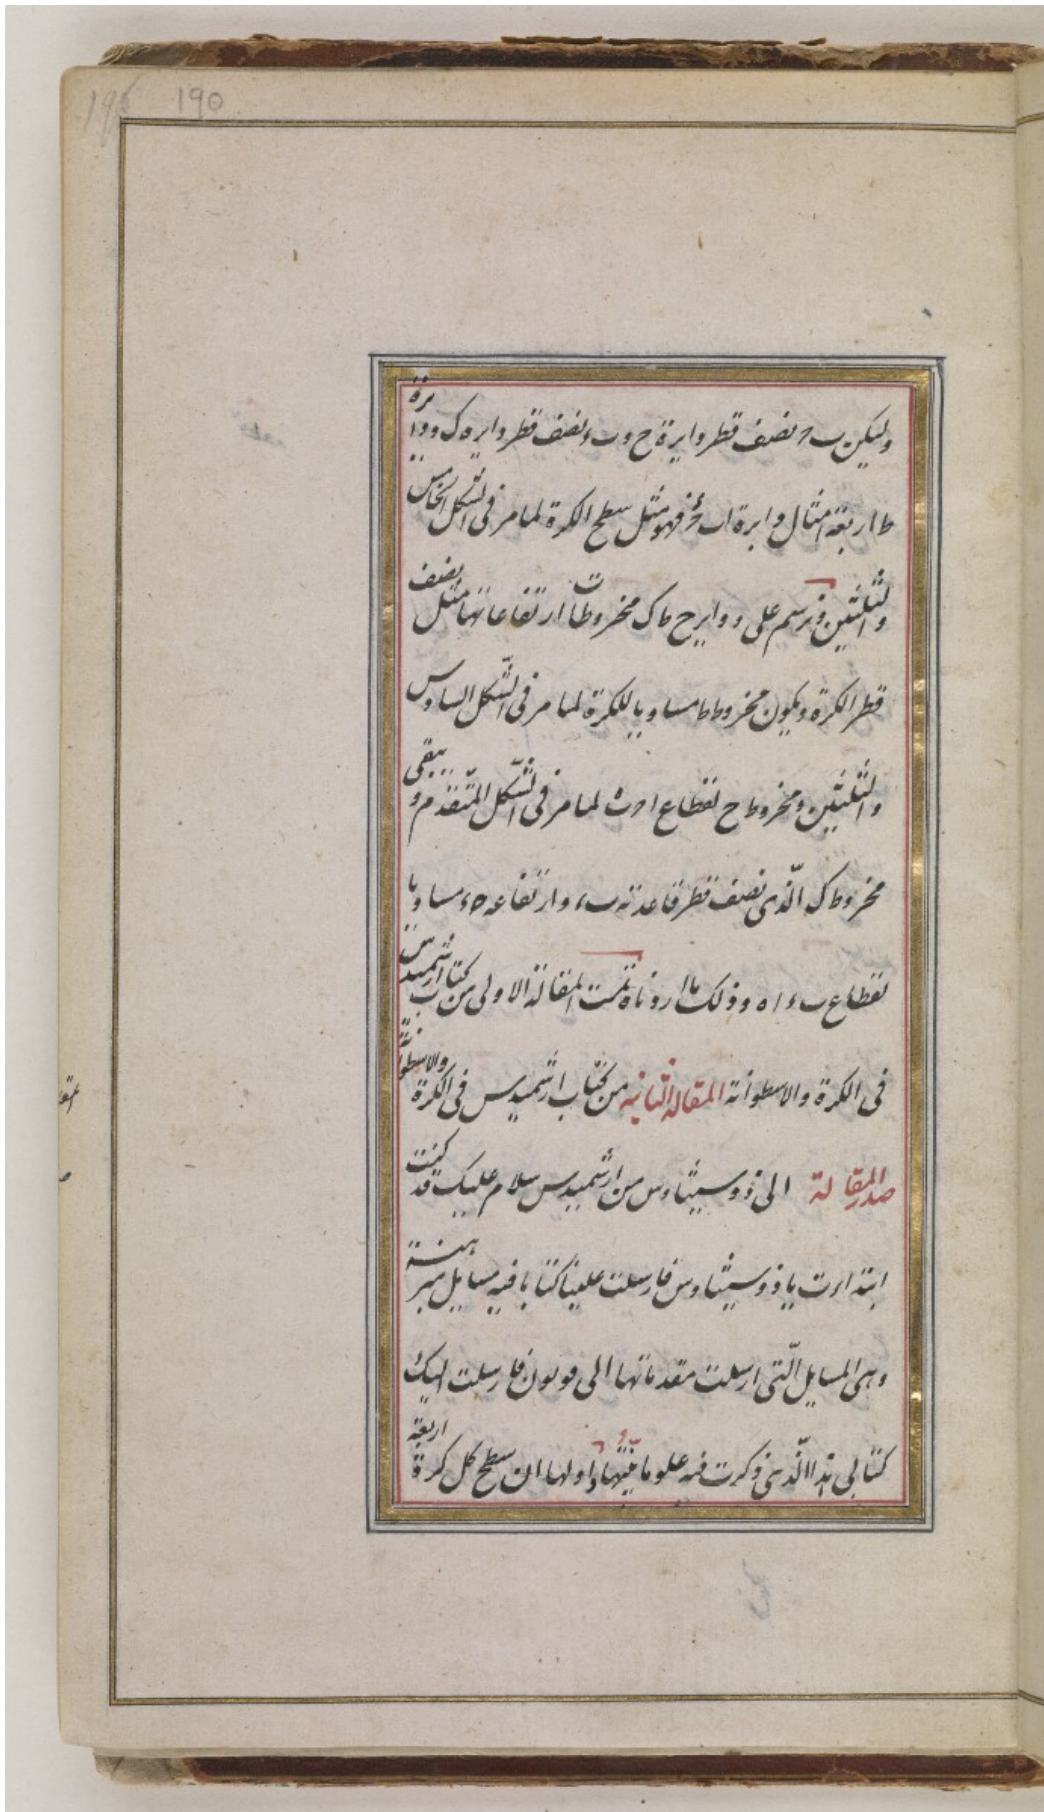 190
وليكن ب ر نصف قطر دايرة ح و ب ء نصف قطر دايره ك ودايرة
ط اربعة امثال دايرة اب فهو مثل سطح الكرة لما مر فى الشكل الخامس
والثلثين ونرسم على دواير ح ط ك مخروطات ارتفاعاتها مثل نصف
قطر الكرة ويكون مخروط ط مساويا للكرة لما مر فى الشكل السادس
والثلثين ومخروط ح لقطاع لما مر فى الشكل المتقدم و يبقى
مخروط ك الذى نصف قطر قاعدته ب ء وارتفاعه ه ء مساويا
لقطاع ب ء ا ه وذلك ما اردناه تمت المقالة الاولى من كتاب ارشميدس
فى الكرة والاسطوانة المقالة الثانيه من كتاب ارشميدس فى الكرة والاسطوانة
صدر المقالة الى ذوسيثاوس من ارشميدس سلام عليك قد كنت
ابتدات يا ذوسيثاوس فارسلت علينا كتابا فيه مسايل مبرهنة
وهى المسايل التى ارسلت مقدماتها الى قونون فارسلت اليك
كتابى هذا الذى ذكرت فيه علوما اولها ان سطح كل كرة اربعة